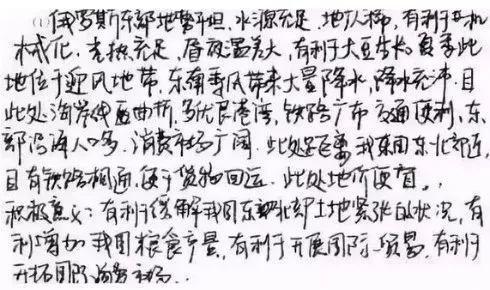 (1)俄罗斯东部地势平坦,水源充足,地广人稀,有利于机
械化,光热充足,昼夜温差大,有利于大豆生长。夏季此
地位于迎风地带,东南季风带来大量降水,降水充沛.且
此处海岸线曲折,多优良港湾,铁路广布交通便利,东
部沿海人口多,消费市场广阔.此处距离我国东北部近,
且有铁路相通,便于货物回运.此处地价便宜。,
积极意义:有利于缓解我国东北部土地紧张的状况,有
利增加我国粮食产量,有利于开展国际贸易,有利于
开拓国际消费市场..